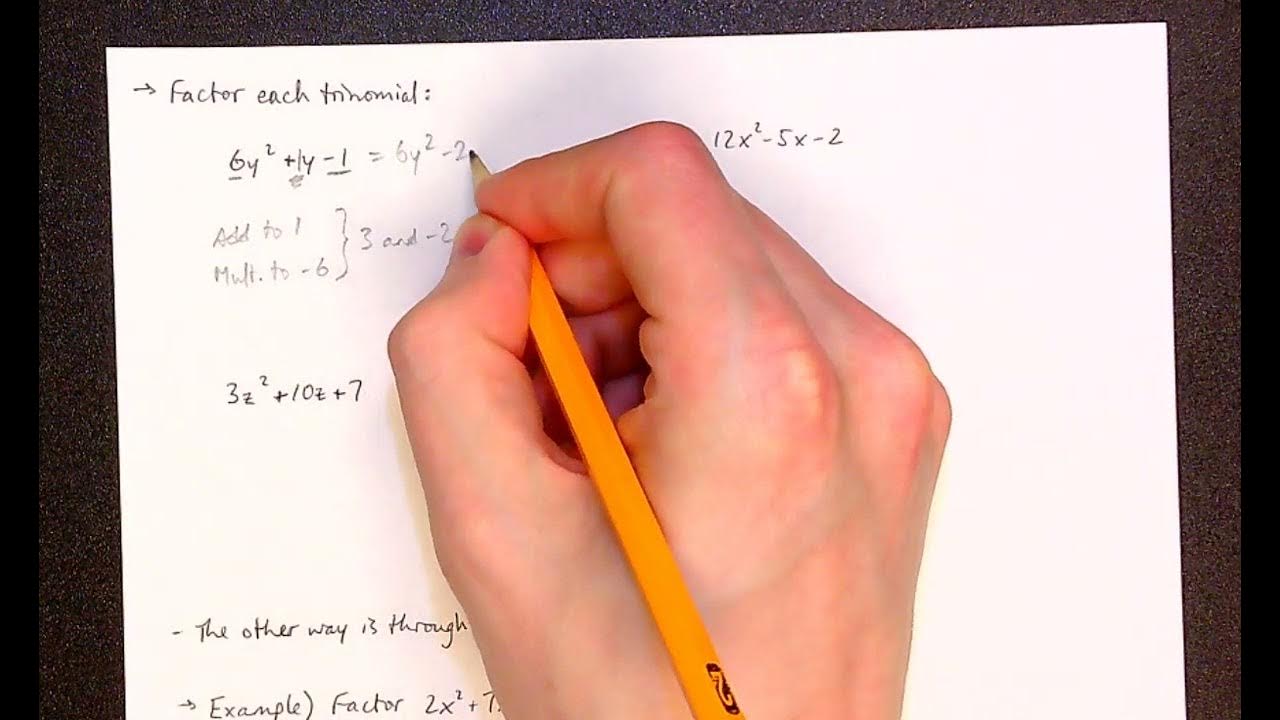 → Factor each trinomial:
6y² +1y - 1 = 6y² - 2
12x² - 5x - 2
Add to 1 } 3 and -2
Mult. to -6
3z² + 10z + 7
- The other way is through
→ Example) Factor 2x² + 7
2